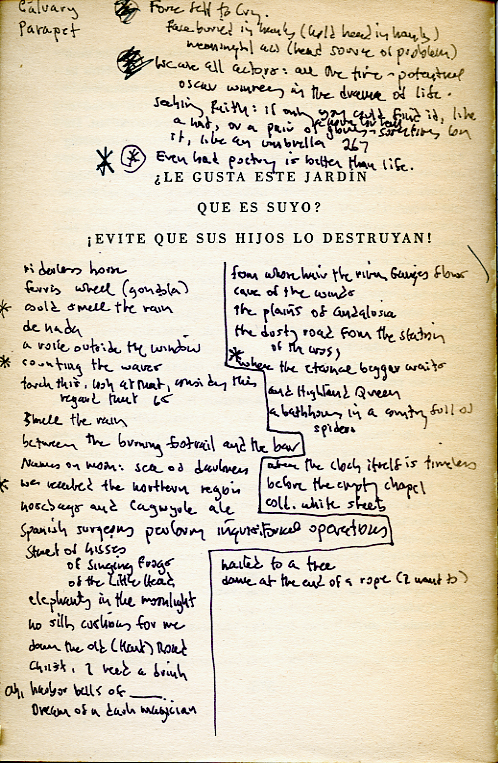 Calvary
Parapet
Force self to cry.
Face buried in hands (hold head in hands)
meaningful act (head source of problem)
We are all actors: all the time - potential
oscar winners in the drama of life.
Seeking Faith: if only you could find it, like
a hat, or a pair of gloves - sometimes
it, like an umbrella 267
* Even bad poetry is better than life.
¿LE GUSTA ESTE JARDÍN
QUE ES SUYO?
¡EVITE QUE SUS HIJOS LO DESTRUYAN!
riderless horse
ferris wheel (gondola)
* could smell the rain
de nada
a voice outside the window
* counting the waves
torch this, look at that, consider this
regard that 65
smell the rain
between the burning footrail and the bar
Names on moon: sea of darkness
* was reached the northern region
nosebags and ale
Spanish surgeons performing inquisitional operations
Street of kisses
of singing frogs
of the Little Head
elephants in the moonlight
no silk cushions for me
down the old (Kent) Road
Christ, I need a drink
Oh, harbor bells of ____
Dream of a dark magician
from whose hair the river Ganges flows
cave of the winds
the plains of Andalusia
the dusty road from the station
of the cross,
* where the eternal beggar waits
and Highland Queen
a bathhouse in a country full of
spiders
when the clock itself is timeless
before the empty chapel
coll. white street
nailed to a tree
dance at the end of a rope (I want to)